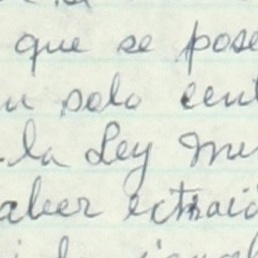 que se pose
un solo cent
la Ley me
aber extraid